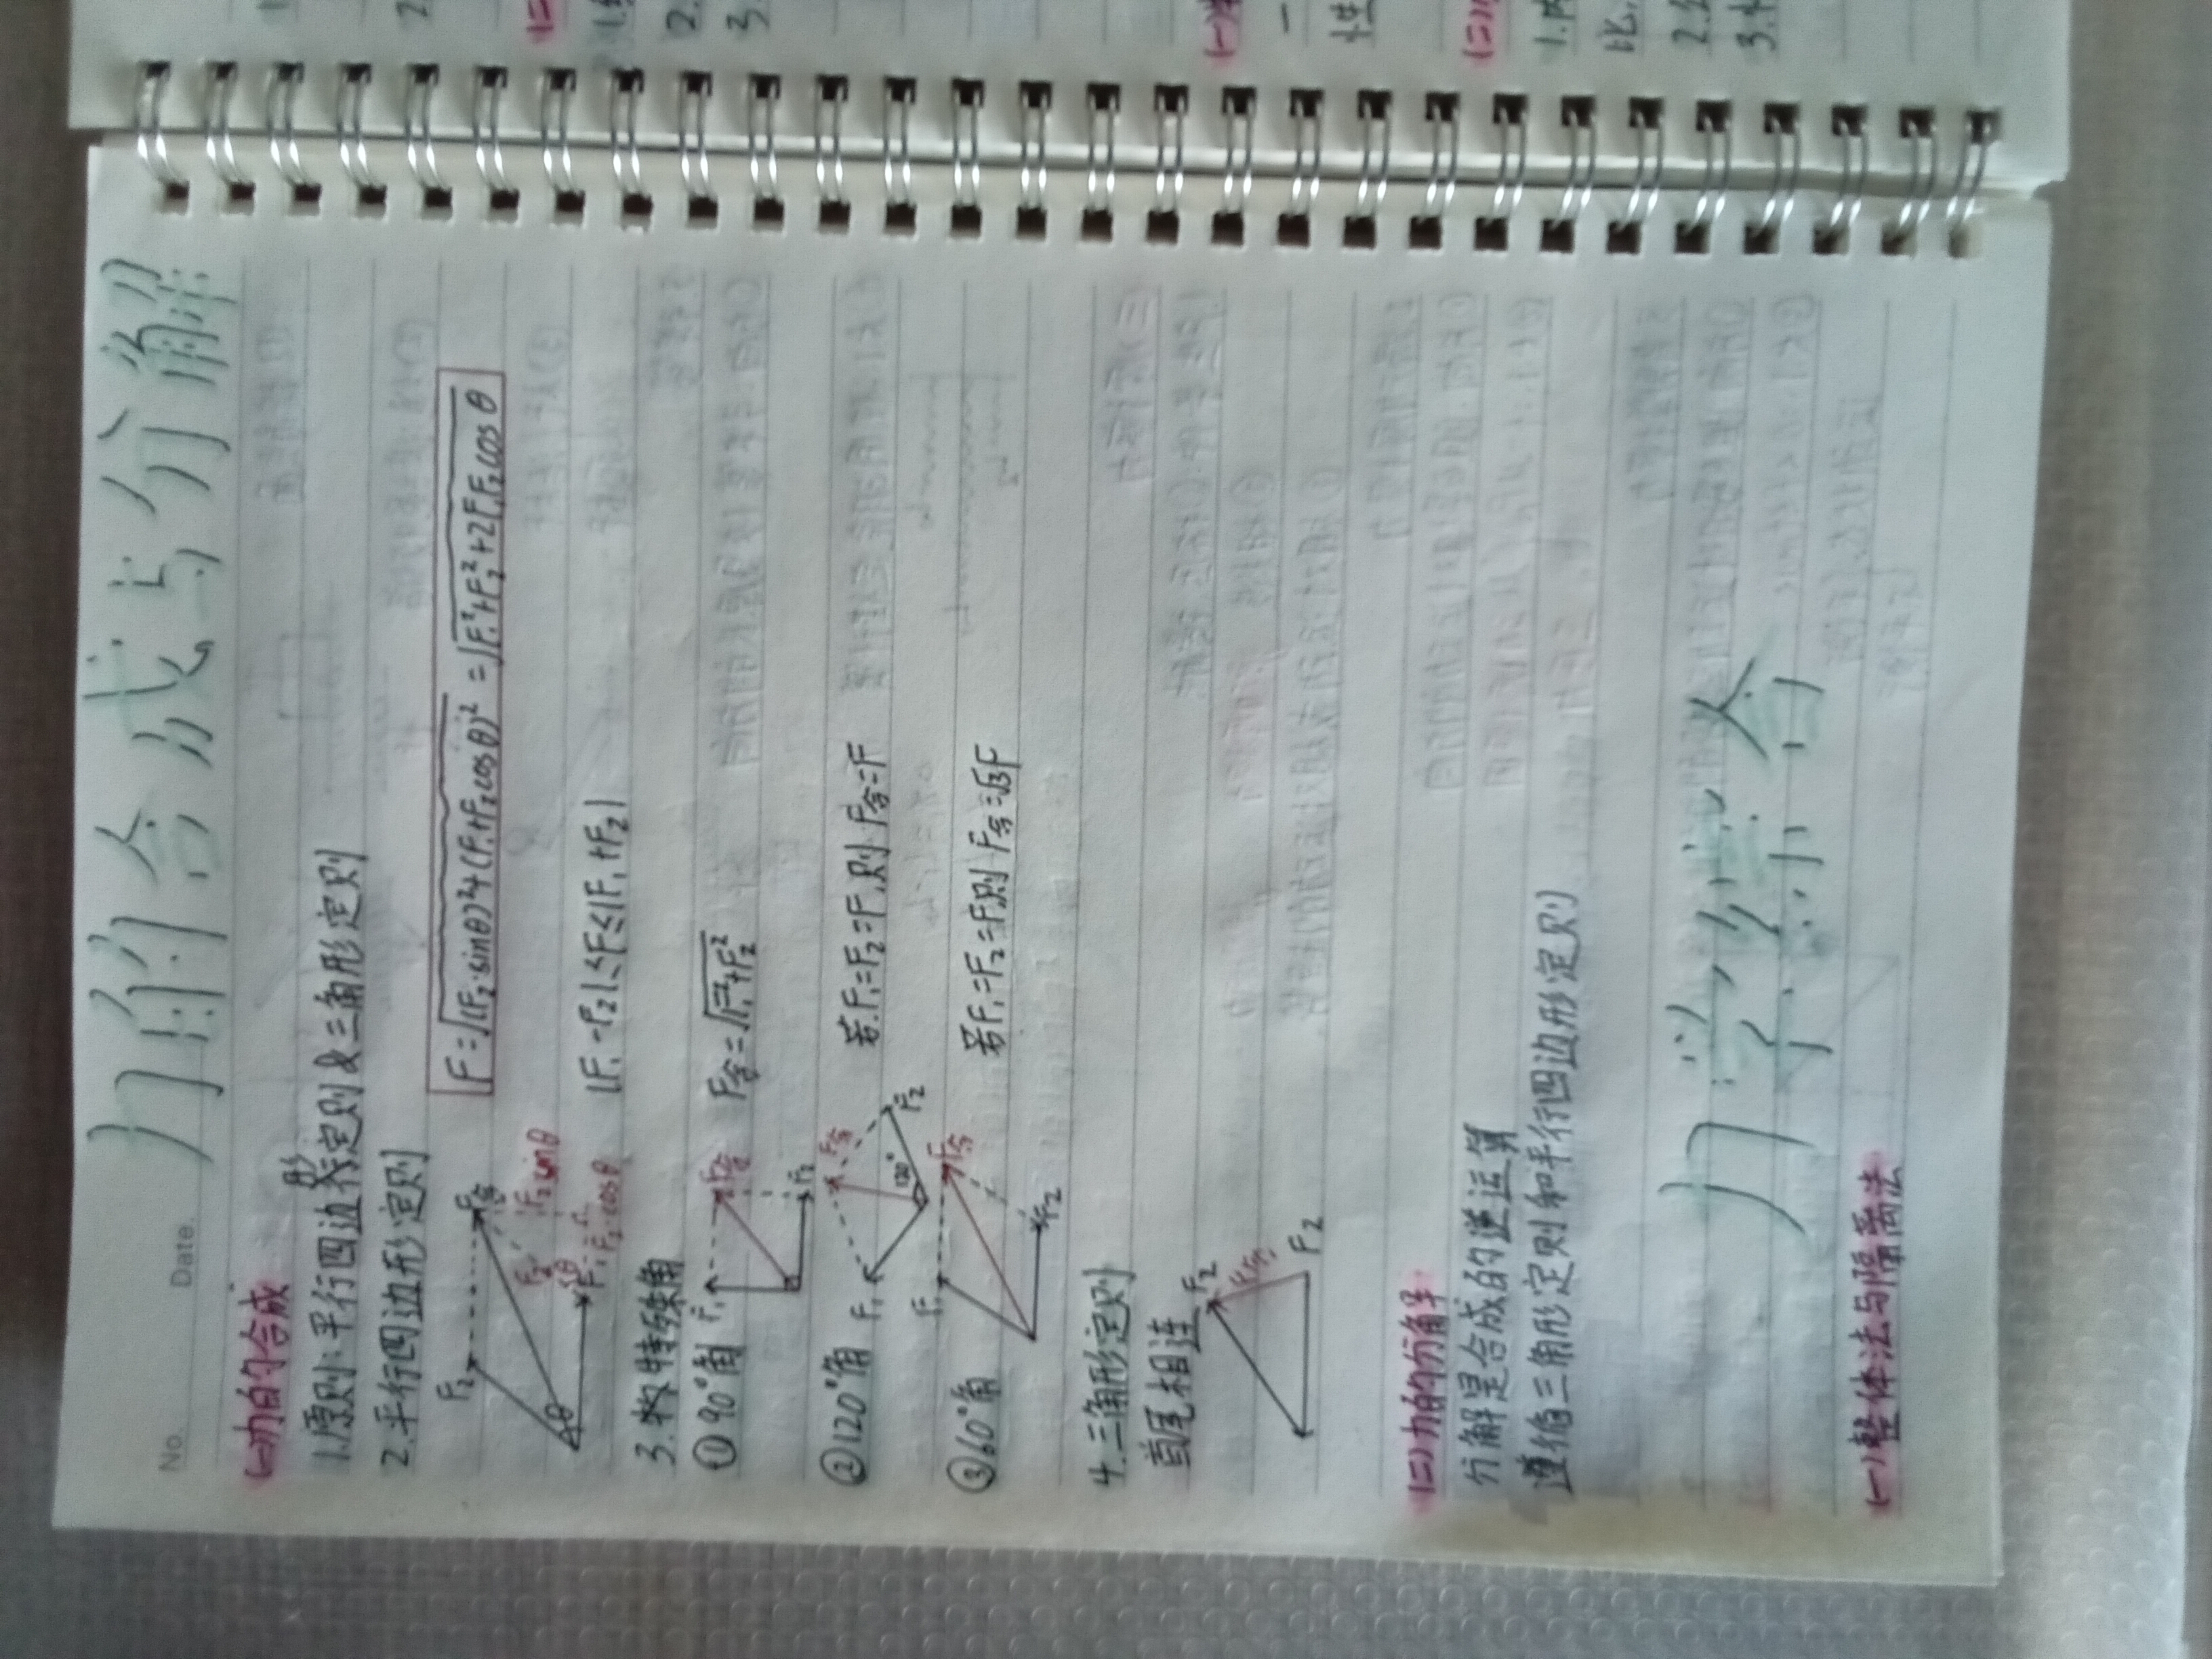 No.
Date
力的合成与分解
(一)力的合成
1.原则:平行四边形定则&三角形定则
2.平行四边形定则
F₂ F合
F=√(F₂·sinθ)²+(F₁+F₂cosθ)² =√F₁²+F₂²+2F₁F₂cosθ
F₂ F₂sinθ
θ θ F₁ F₂·cosθ
|F₁-F₂|≤F≤|F₁+F₂|
3.特殊角
①90°角 F₁ F合 F₂ F合=√F₁²+F₂²
②120°角 F₁ F合 120° F₂ 若F₁=F₂=F,则F合=F
③60°角 F₁ F合 F₂ 若F₁=F₂=F则F合=√3F
4.三角形定则
首尾相连
F₂
F₂
(二)力的分解:
分解是合成的逆运算
遵循三角形定则和平行四边形定则
力学综合
(一)整体法与隔离法